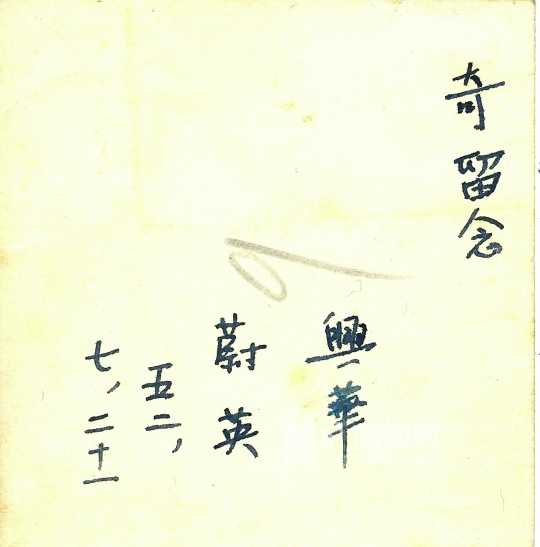 奇留念
興華
蔚英
五二、
七、二十一